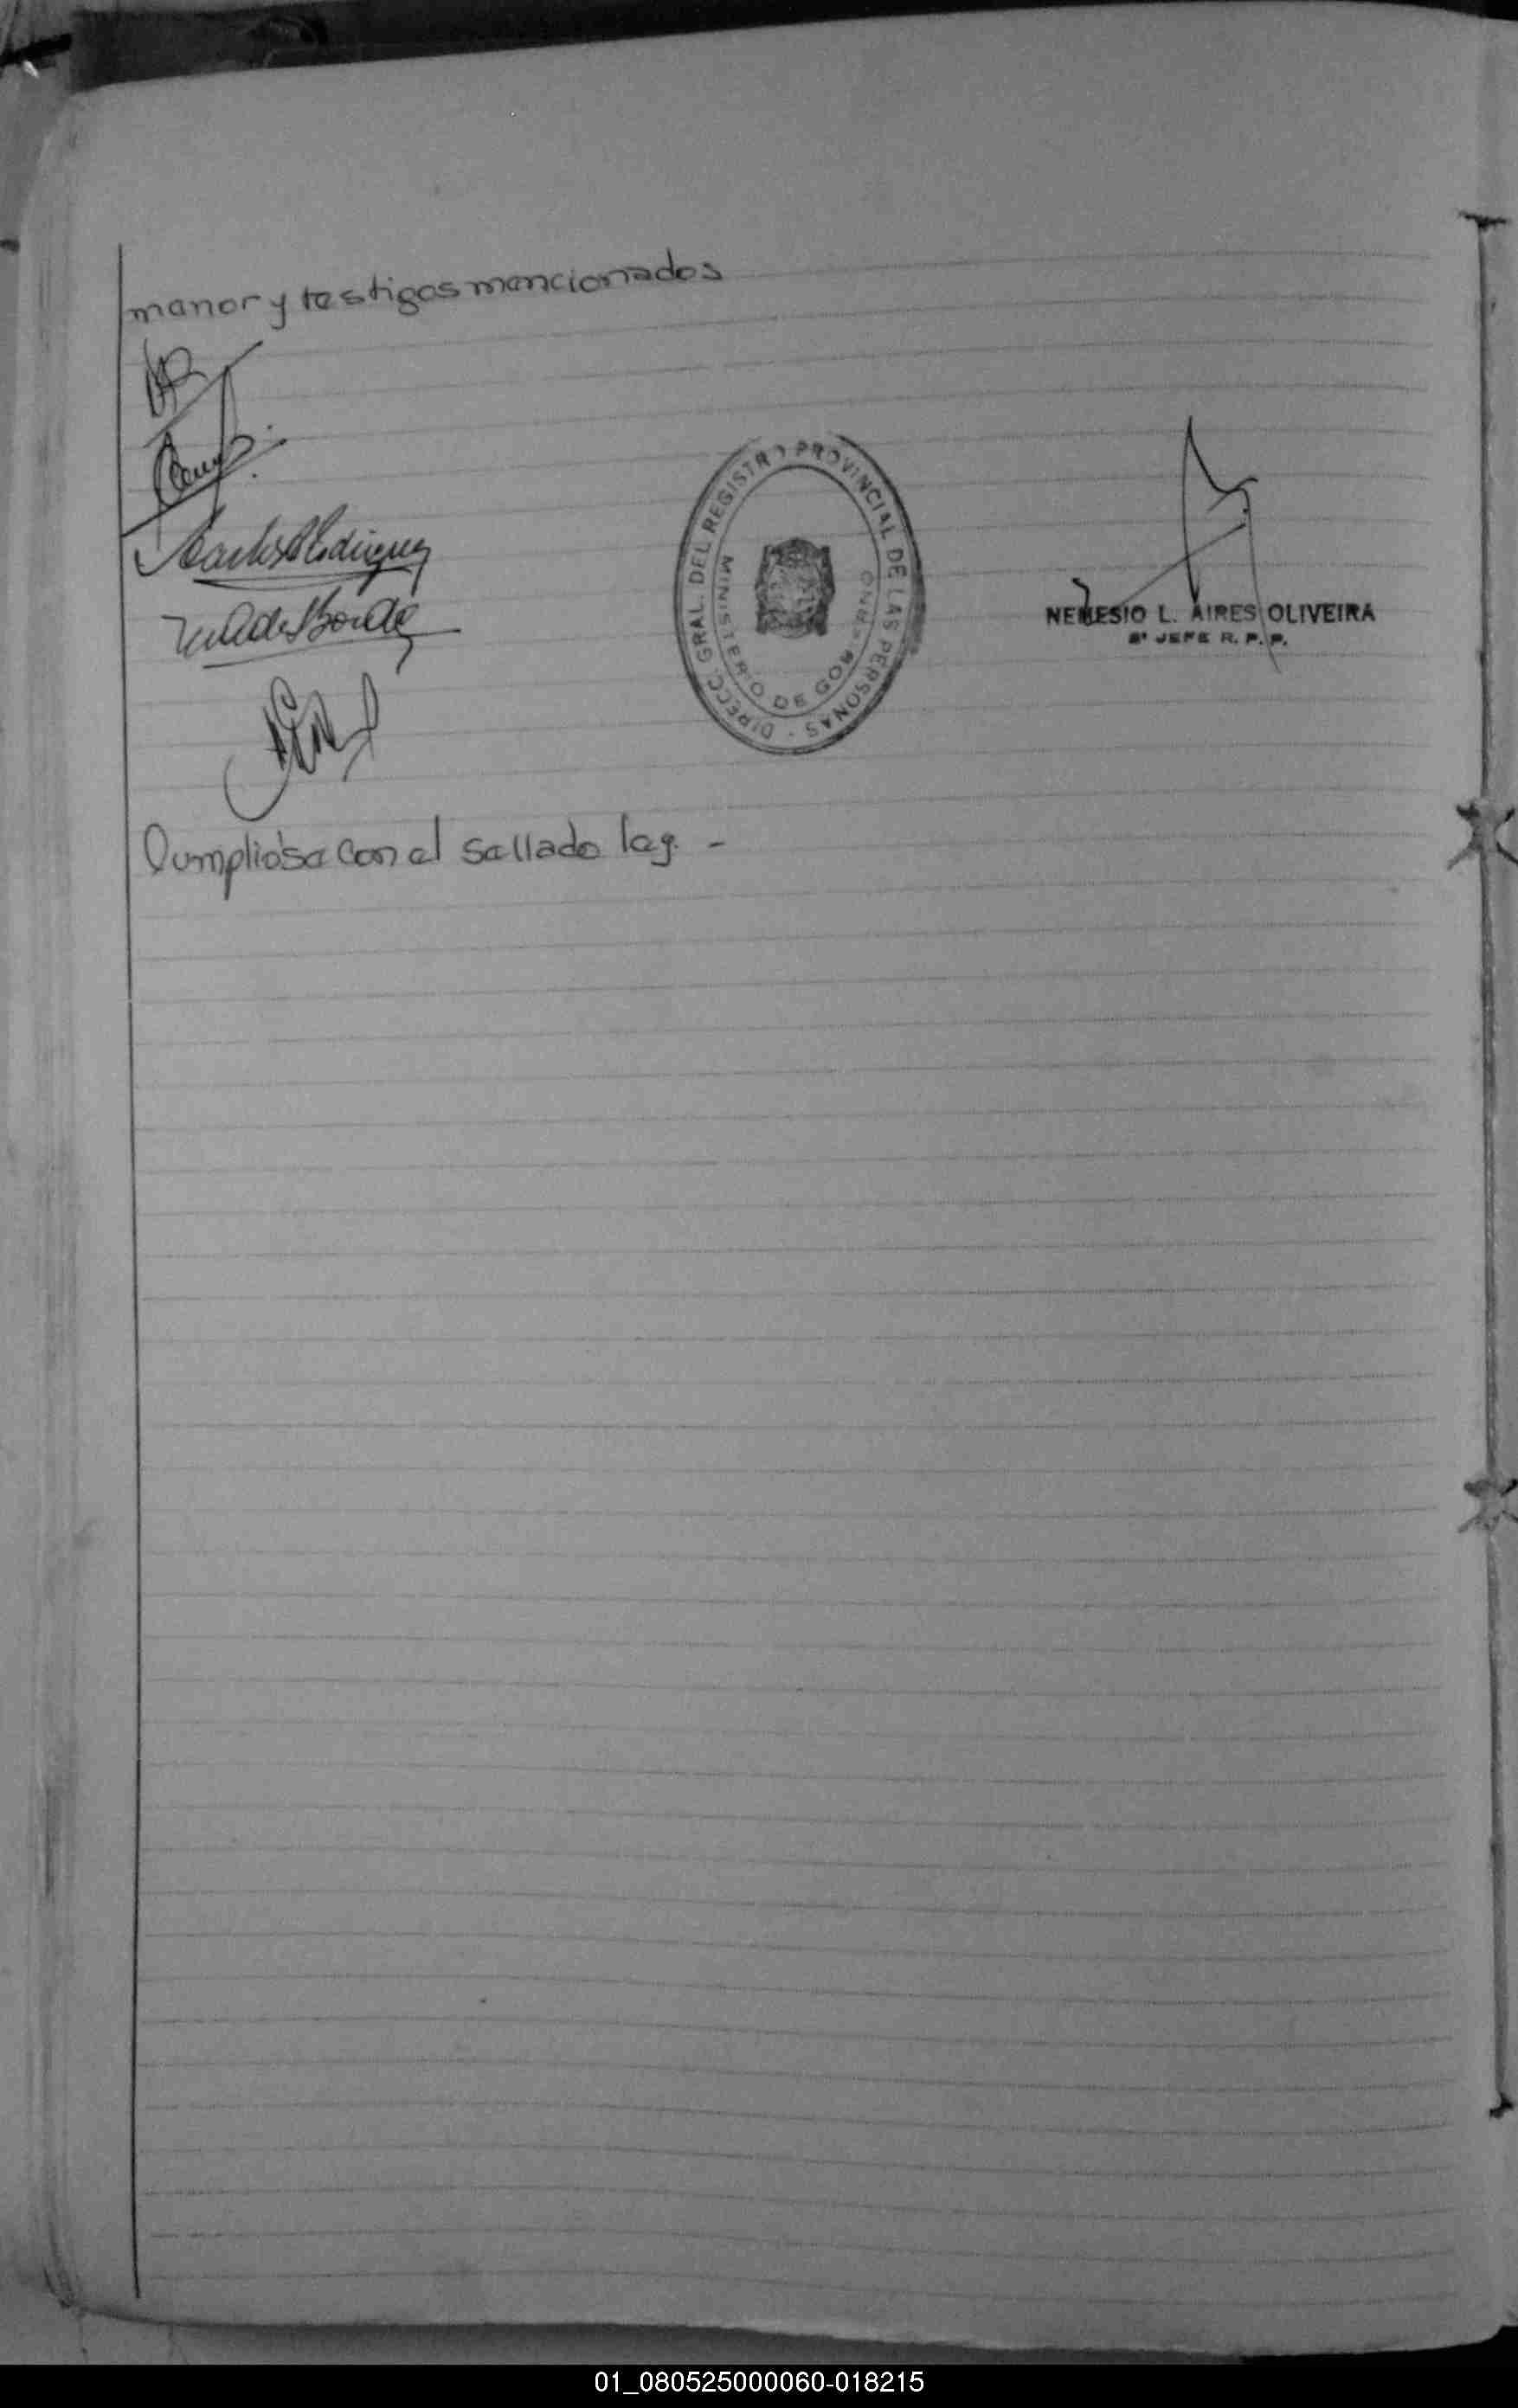 menor y testigos mencionados
Carlos Rodriguez
DIRECC. GRAL. DEL REGISTRO PROVINCIAL DE LAS PERSONAS -
MINISTERIO DE GOBIERNO
NEMESIO L. AIRES OLIVEIRA
2º JEFE R. P. P.
Cumplióse con el sellado leg. -
01_080525000060-018215